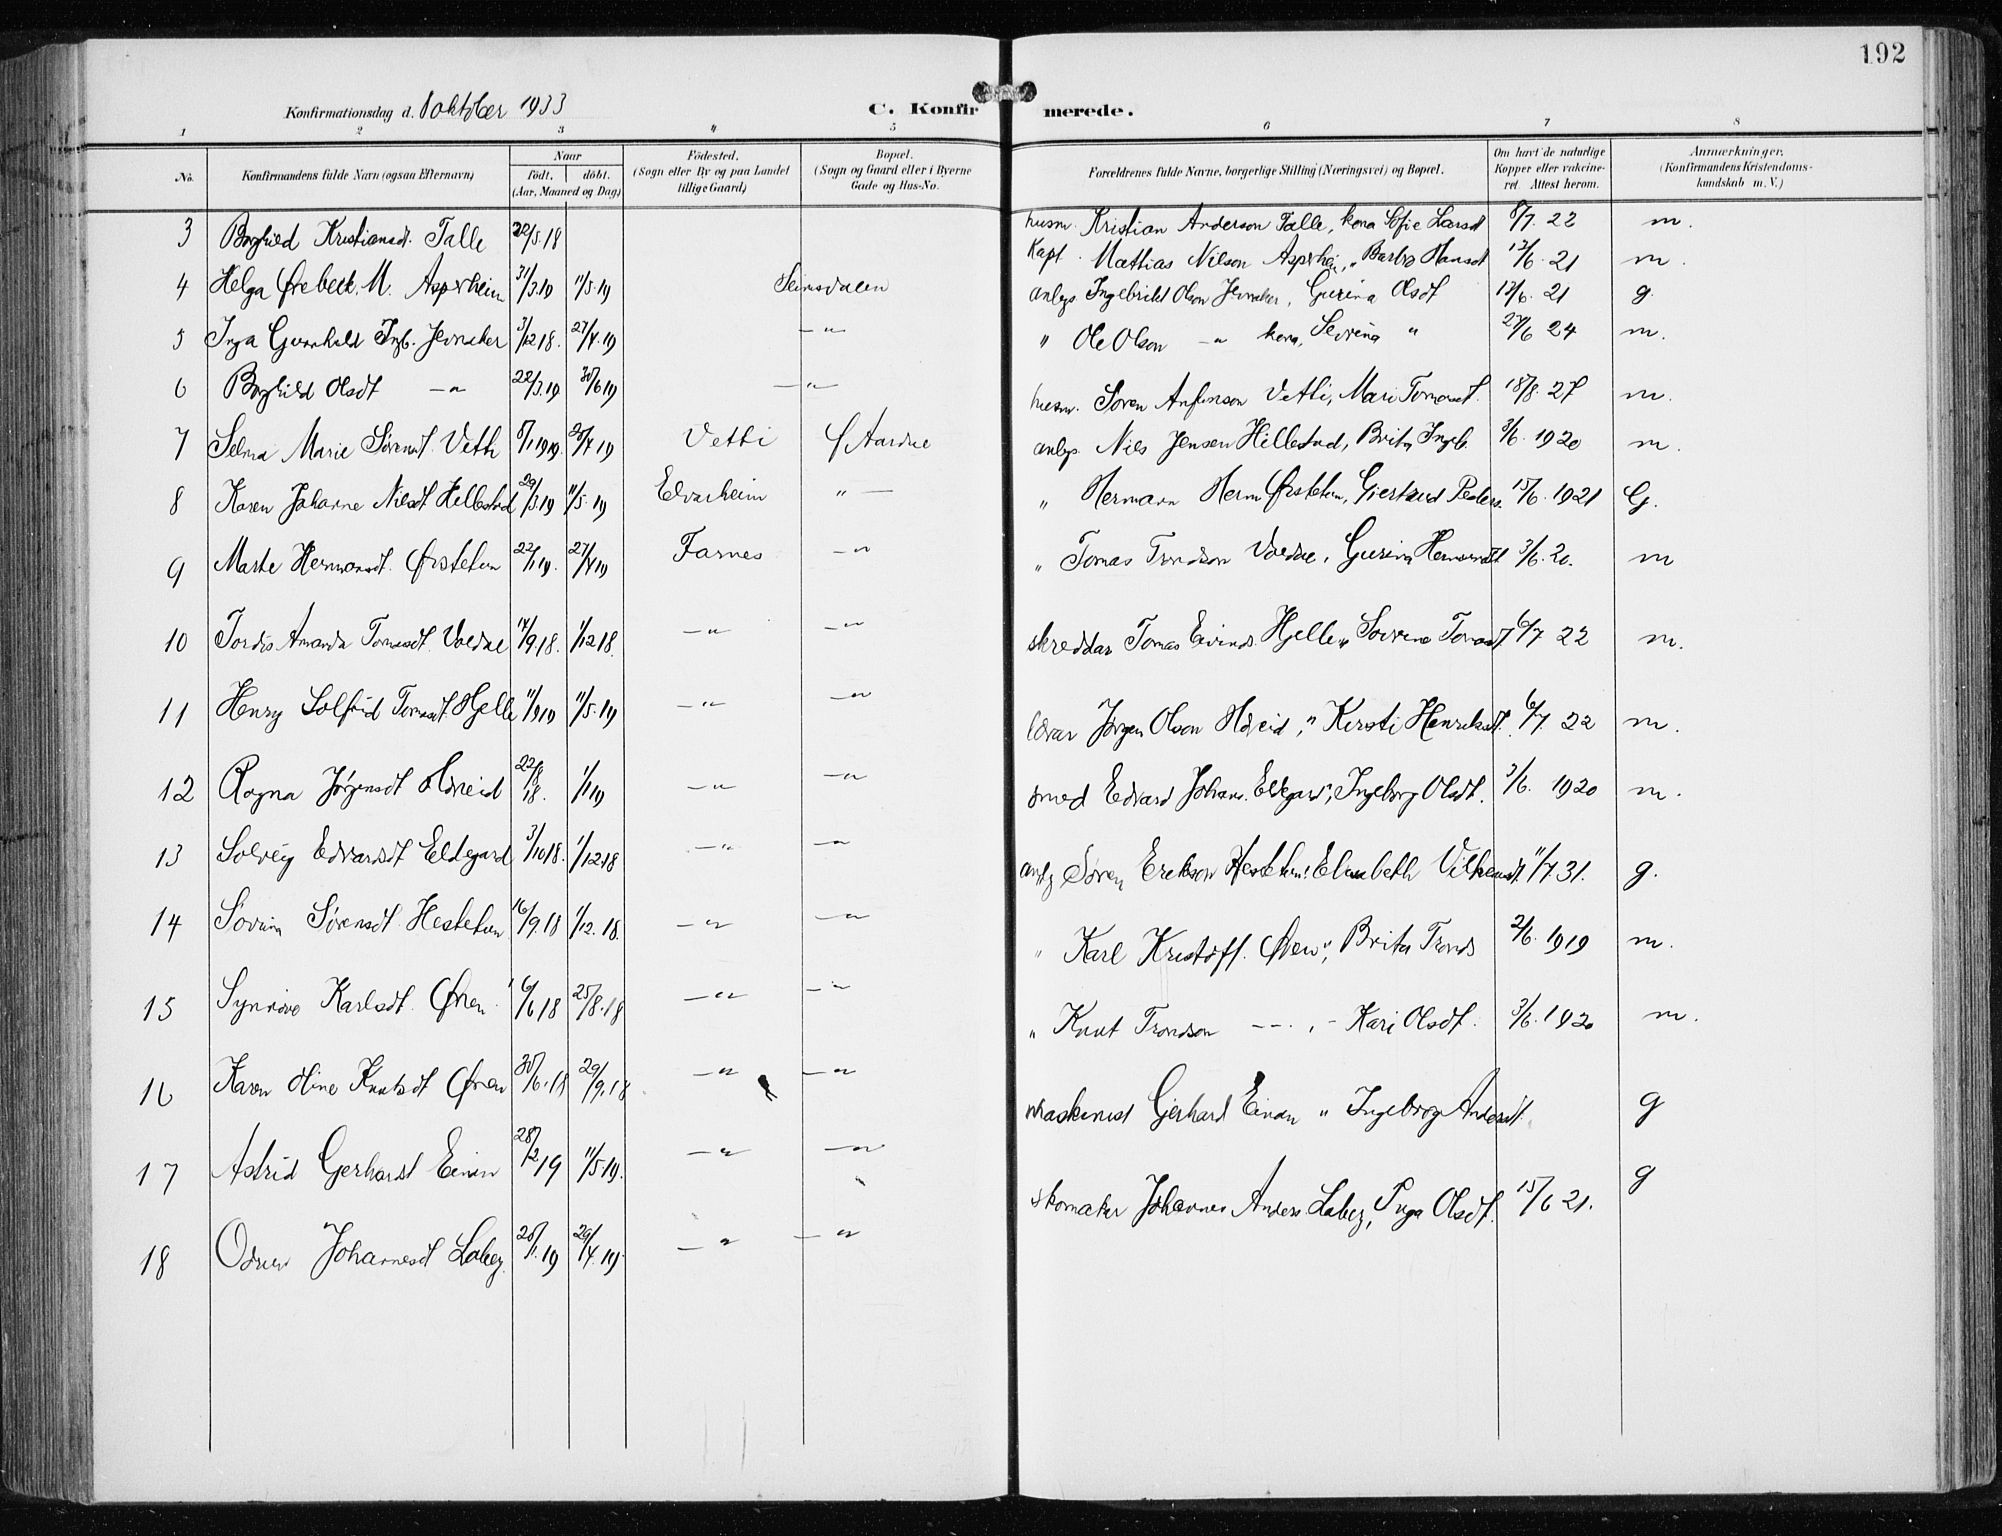 192
Konfirmationsdag d. 1 oktober 1933
C. Konfirmerede.
1 2 3 4 5 6 7 8
No. Konfirmandens fulde Navn (ogsaa Efternavn) Naar født. døbt. (Aar, Maaned og Dag) Fødested. (Sogn eller By og paa Landet tillige Gaard) Bopæl. (Sogn og Gaard eller i Byerne Gade og Hus-No. Forældrenes fulde Navne, borgerlige Stilling (Næringsvei) og Bopæl. Om havt de naturlige Kopper eller vakcineret. Attest herom. Anmærkninger. (Konfirmandens Kristendomskundskab m. V.)
3 Borghild Kristiansdt. Talle 22/5.18 husm. Kristian Anderson Talle, kona Sofie Larsdt 8/7. 22 m.
4 Helga Ørebeck. M. Asperheim 31/3.19 11/5.19 Seimsdalen Kapt. Mathias Nilson Asperheim, " Barbro Hansdt 13/6. 21 m.
5 Inga Gunhild Ingb. Jevnaker 3/12 18. 27/4.19 — " — anbgs Ingebrikt Olson Jevnaker, Gurina Olsdt 17/6. 21 g.
6 Borghild Olsdt — " 22/3.19 30/6 19 — " — " Ole Olson — " kona, Sevrina " 27/6 24 m.
7 Selma Marie Sørensdt. Vetti 8/1 1919. 25/4 19 Vetti Ø Aardal husm. Søren Anfinson Vetti, Mari Tomasdt. 18/8. 27 m.
8 Karen Johanne Nilsdt Hillestad 29/3.19 11/5.19 Elvarheim " — anbgs. Nils Jensen Hillestad, Brita Ingeb. 3/6. 1920 m.
9 Marta Hermansdt. Øistetun 22/1 19. 27/4 19 Farnes — " " Herman Herm Øistetun, Giertrud Peders. 15/6. 1921 G.
10 Tordis Amanda Tomasdt. Voldal 14/9.18. 1/12 18. — " — " " Tomas Trondson Voldal, Gurina Hermansdt 3/6. 20. m
11 Henry Solfrid Tomasdt Hjelle 11/1 19 11/5.19 — " — " skreddar Tomas Eivinds Hjelle " Sevrina Tomasdt 6/7 22 m.
12 Ragna Jørgensdt Hdreid 22/8 18. 1/1 19 — " — " lærar Jørgen Olson Hdreid, " Kirsti Henriksdt. 6/7. 22 m.
13 Solveig Edvardsdt Eldegard 3/10 18. 1/12 18 — " — " smed Edvard Johans. Eldegard, " Ingeborg Olsdt. 3/6. 1920 m.
14 Sevrina Sørensdt Hestetun 16/9.18 1/12.18. — " — " anbg Søren Erikson Hestetun: Elisabeth Vilhemsdt. 11/7.31. g.
15 Synnøve Karlsdt. Øren 6/6 18 25/8.18 — " — " " Karl Kristoff. Øren, " Brita Tronds 2/6. 1919 m.
16 Karen Oline Knutsdt Øren 30/6.18 29/9.18 — " — " " Knut Trondson — " — Kari Olsdt. 3/6. 1920 m.
17 Astrid Gerhardt Einan 28/2 19 11/5.19. — " — " maskinist Gerhard Einan " Ingeborg Andersdt. g
18 Odrun Johannesdt Laberg. 28/1.19 29/4.19 — " — " skomaker Johannes Anders. Laberg, Inga Olsdt. 15/6 21. g